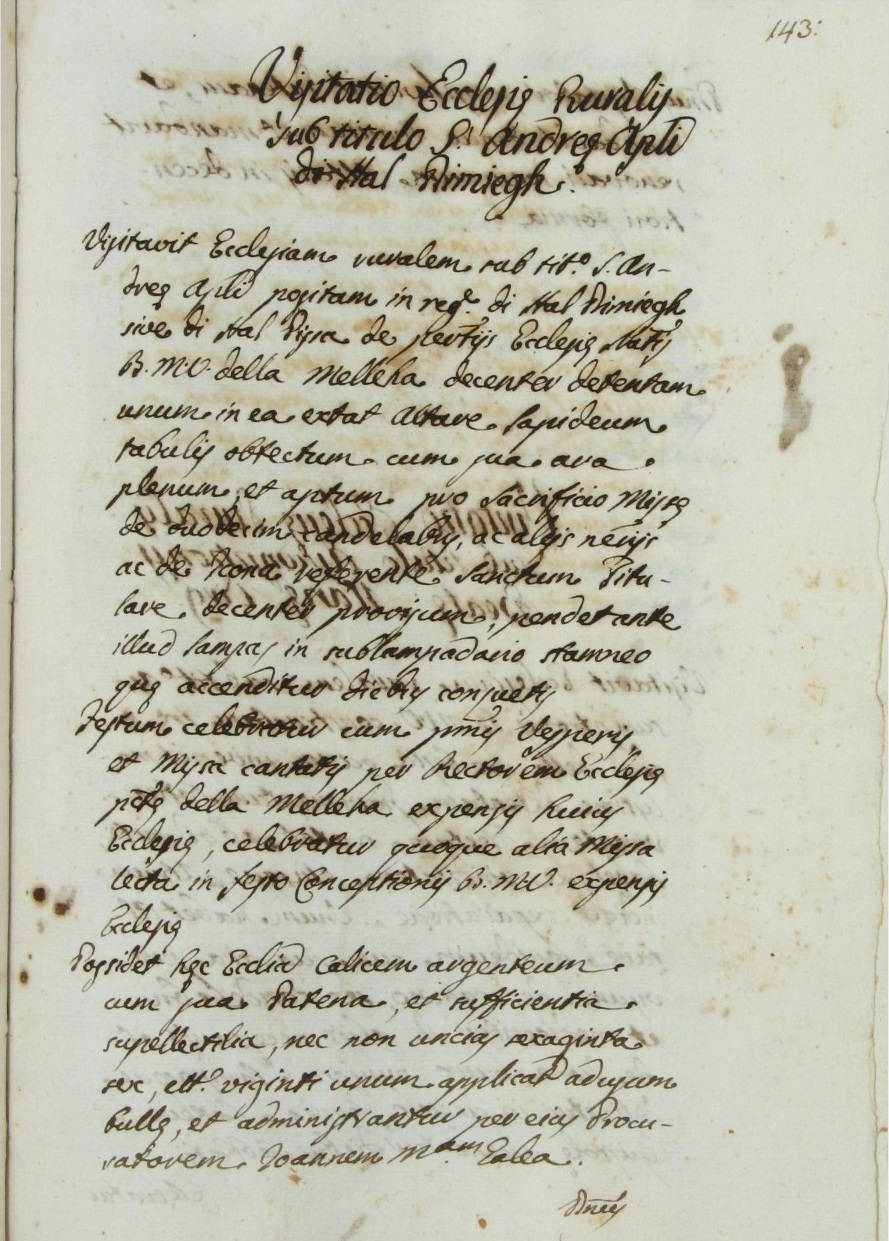 143:
Visitatio Ecclesię Ruralis
sub titulo S. Andreę Apli
di Hal Dimiegh.
Visitavit Ecclesiam ruralem sub tit.o S. An-
dreę Apli positam in reg.e di Hal Dimiegh
sive di Hal Pisa de pertijs Ecclesię Natis
B.M.V. della Melleha decenter detentam
unum in ea extat Altare lapideum
tabulis obtectum cum sua ara
plenum, et aptum pro Sacrificio Missę
de duodecim candelabris, ac alijs necrijs
ac de Icona referente Sanctum Titu-
lare decenter provisum, pendet ante
illud lampas in sublampadario stamneo
quę accenditur diebus consuetis
Festum celebratur cum primis Vesperis
et Missa cantatis per Rectorem Ecclesię
pctę della Melleha expensis huius
Ecclesię, celebratur quoque alia Missa
lecta in festo Conceptionis B.M.V. expensis
Ecclesię
Possidet hęc Ecclia Calicem argenteum
cum sua Patena, et sufficientia
supellectilia, nec non uncias sexaginta
sex, ett.s viginti unum applicat ad usum
bullę, et administrantur per eius Procu-
ratorem Joannem M.am Galea.